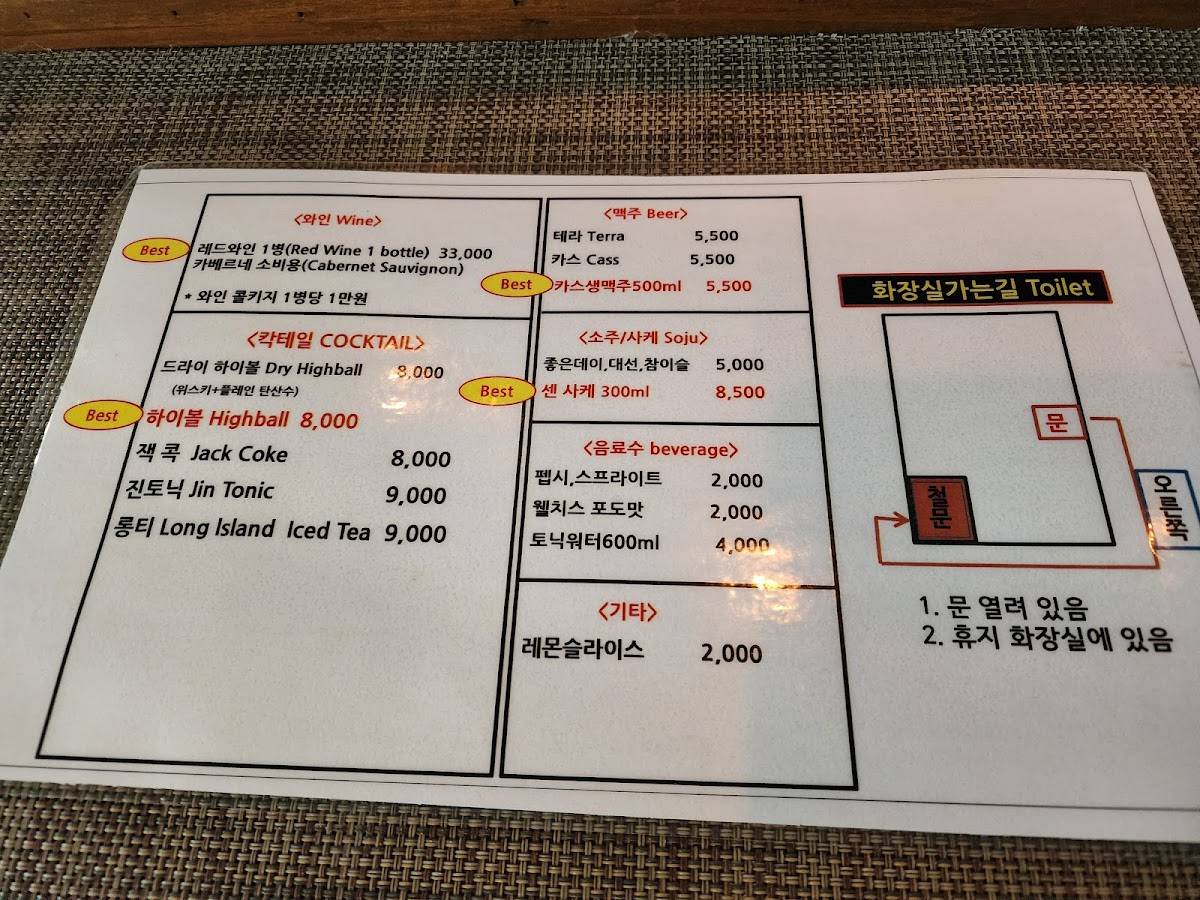 <와인 Wine>
Best
레드와인 1병(Red Wine 1 bottle) 33,000
카베르네 소비용(Cabernet Sauvignon)
* 와인 콜키지 1병당 1만원
<칵테일 COCKTAIL>
드라이 하이볼 Dry Highball 8,000
(위스키+플레인 탄산수)
Best
하이볼 Highball 8,000
잭 콕 Jack Coke 8,000
진토닉 Jin Tonic 9,000
롱티 Long Island Iced Tea 9,000
<맥주 Beer>
테라 Terra 5,500
카스 Cass 5,500
Best
카스생맥주500ml 5,500
<소주/사케 Soju>
좋은데이,대선,참이슬 5,000
Best
센 사케 300ml 8,500
<음료수 beverage>
펩시,스프라이트 2,000
웰치스 포도맛 2,000
토닉워터600ml 4,000
<기타>
레몬슬라이스 2,000
화장실가는길 Toilet
문
철문
오른쪽
1. 문 열려 있음
2. 휴지 화장실에 있음